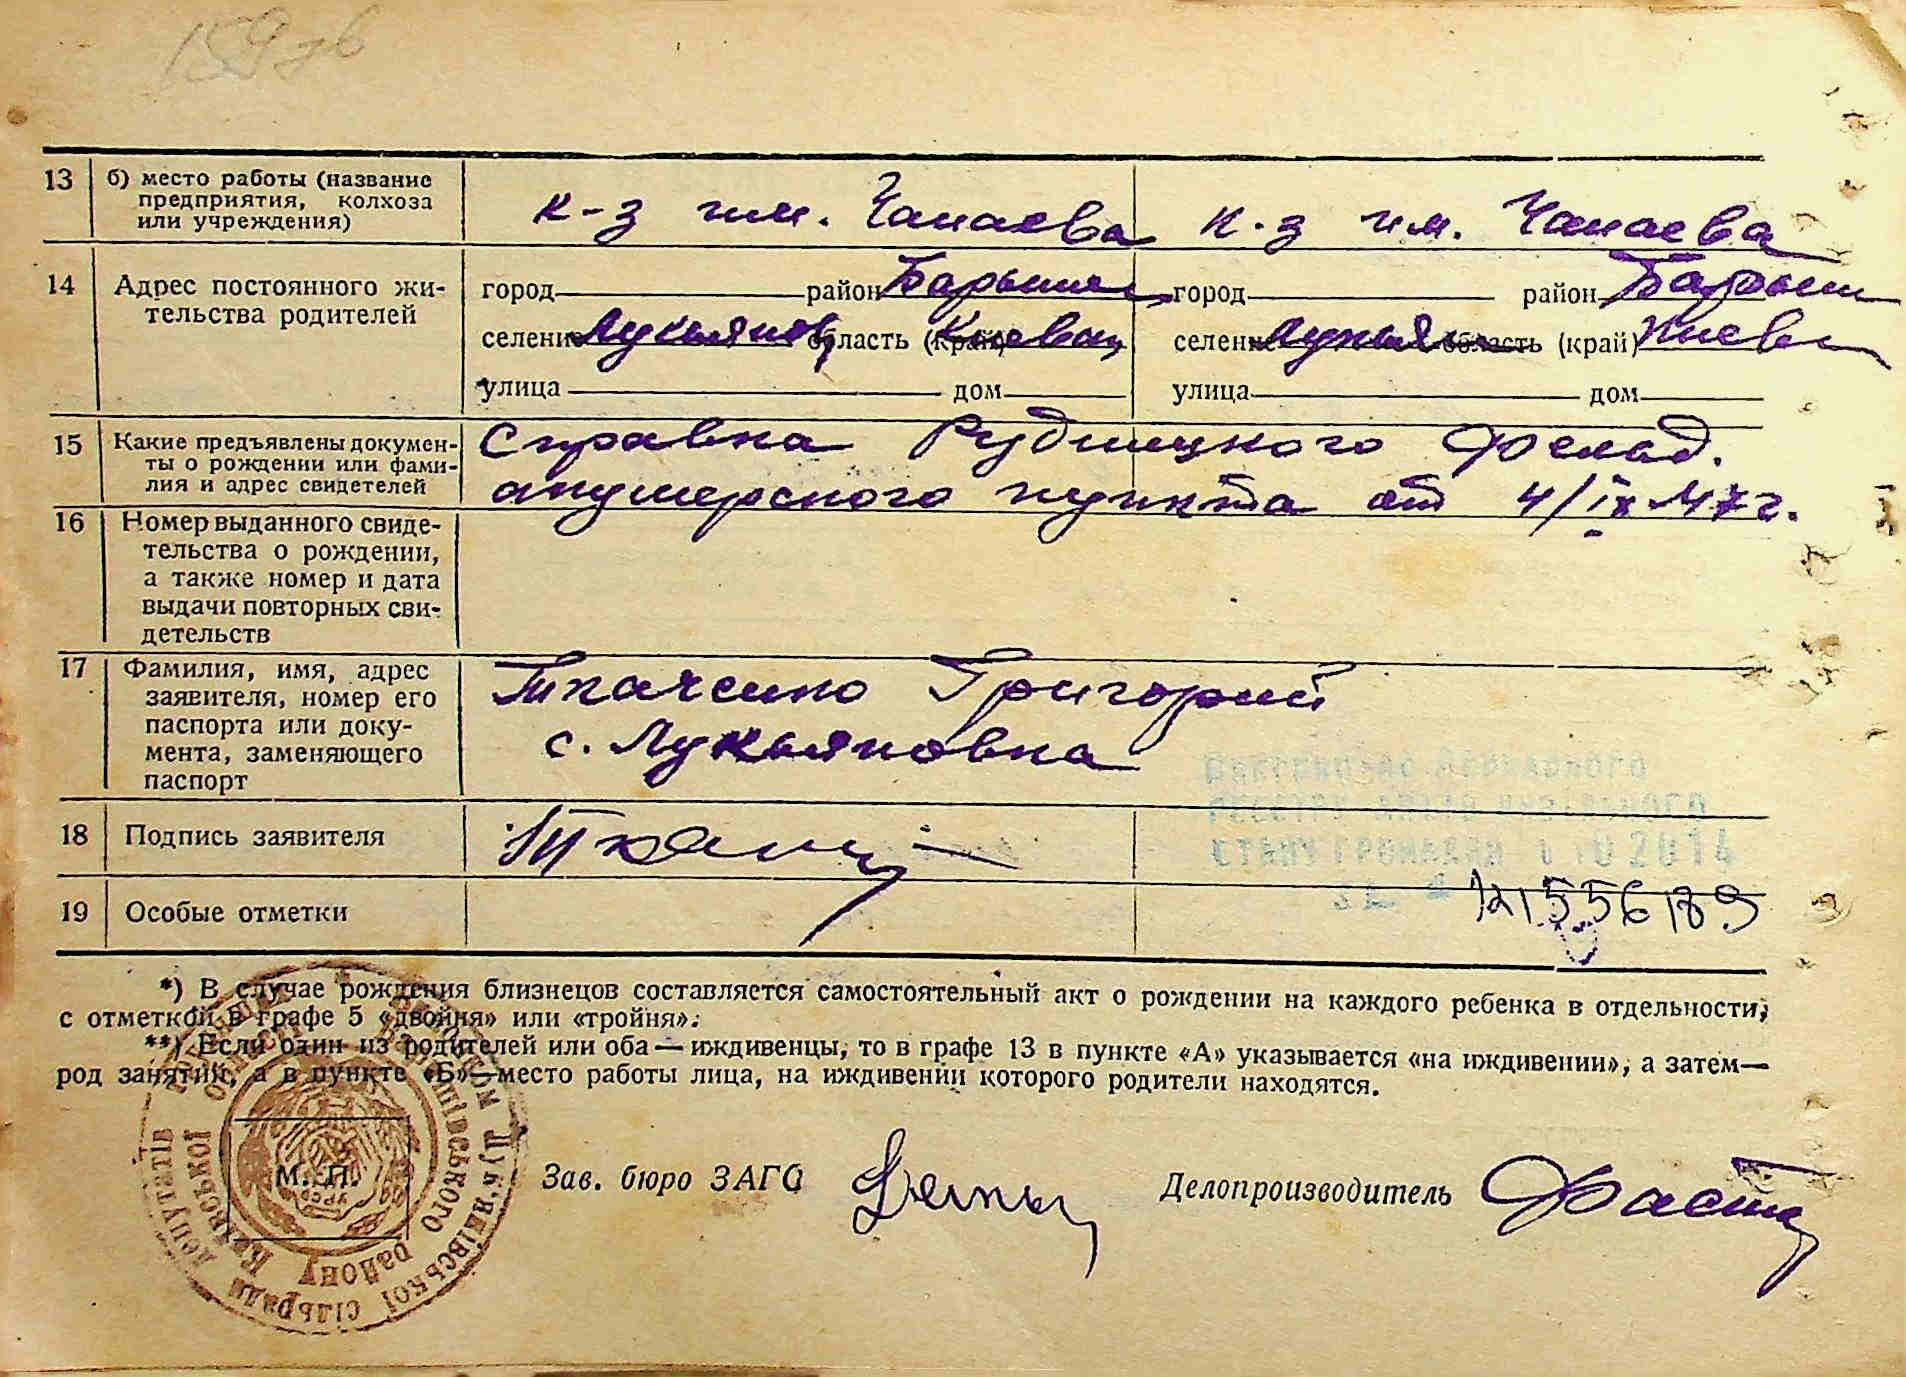 159 зв
13 б) место работы (название предприятия, колхоза или учреждения) к-з им. Чапаева к-з им. Чапаева
14 Адрес постоянного жительства родителей
город район Барыш город район Барыш
селение Лукьянов область (край) Киевск селение Лукья область (край) Киев
улица дом улица дом
15 Какие предъявлены документы о рождении или фамилия и адрес свидетелей
Справка Рудницкого фельд.
акушерского пункта от 4/IX 47 г.
16 Номер выданного свидетельства о рождении, а также номер и дата выдачи повторных свидетельств
17 Фамилия, имя, адрес заявителя, номер его паспорта или документа, заменяющего паспорт
Ткаченко Григорий
с. Лукьяновка
Державного
СТАНУ ГРОМАДЯН 2014
18 Подпись заявителя
19 Особые отметки
*) В случае рождения близнецов составляется самостоятельный акт о рождении на каждого ребенка в отдельности,
с отметкой в графе 5 «двойня» или «тройня».
**) Если один из родителей или оба — иждивенцы, то в графе 13 в пункте «А» указывается «на иждивении», а затем—
род занятий, а в пункте «Б»—место работы лица, на иждивении которого родители находятся.
М. П.
Зав. бюро ЗАГС Делопроизводитель
депутатів Лук'янівської сільради
району Київської
УРСР